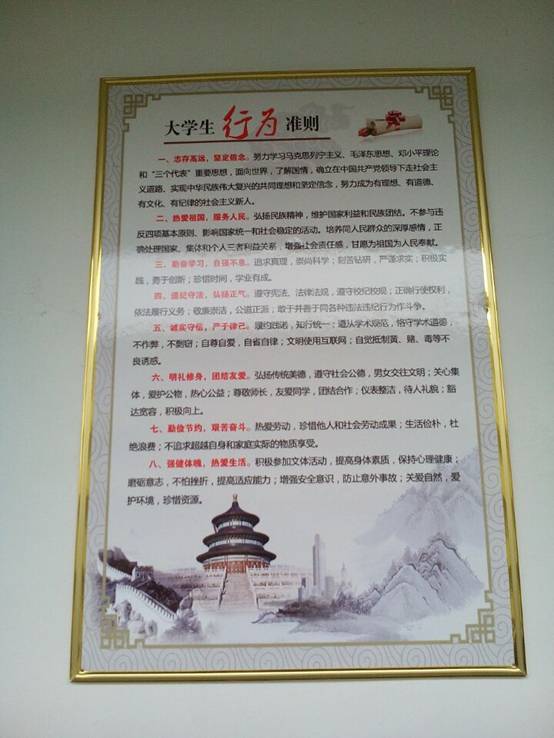 大学生行为准则
一、志存高远，坚定信念。努力学习马克思列宁主义、毛泽东思想、邓小平理论
和“三个代表”重要思想，面向世界，了解国情，确立在中国共产党领导下走社会主
义道路、实现中华民族伟大复兴的共同理想和坚定信念，努力成为有理想、有道德、
有文化、有纪律的社会主义新人。
二、热爱祖国，服务人民。弘扬民族精神，维护国家利益和民族团结。不参与违
反四项基本原则、影响国家统一和社会稳定的活动。培养同人民群众的深厚感情，正
确处理国家、集体和个人三者利益关系，增强社会责任感，甘愿为祖国为人民奉献。
三、勤奋学习，自强不息。追求真理，崇尚科学；刻苦钻研，严谨求实；积极实
践，勇于创新；珍惜时间，学业有成。
四、遵纪守法，弘扬正气。遵守宪法、法律法规，遵守校纪校规；正确行使权利，
依法履行义务；敬廉崇洁，公道正派；敢于并善于同各种违法违纪行为作斗争。
五、诚实守信，严于律己。履约践诺，知行统一；遵从学术规范，恪守学术道德，
不作弊，不剽窃；自尊自爱，自省自律；文明使用互联网；自觉抵制黄、赌、毒等不
良诱惑。
六、明礼修身，团结友爱。弘扬传统美德，遵守社会公德，男女交往文明；关心集
体，爱护公物，热心公益；尊敬师长，友爱同学，团结合作；仪表整洁，待人礼貌；豁
达宽容，积极向上。
七、勤俭节约，艰苦奋斗。热爱劳动，珍惜他人和社会劳动成果；生活俭朴，杜
绝浪费；不追求超越自身和家庭实际的物质享受。
八、强健体魄，热爱生活。积极参加文体活动，提高身体素质，保持心理健康；
磨砺意志，不怕挫折，提高适应能力；增强安全意识，防止意外事故；关爱自然，爱
护环境，珍惜资源。